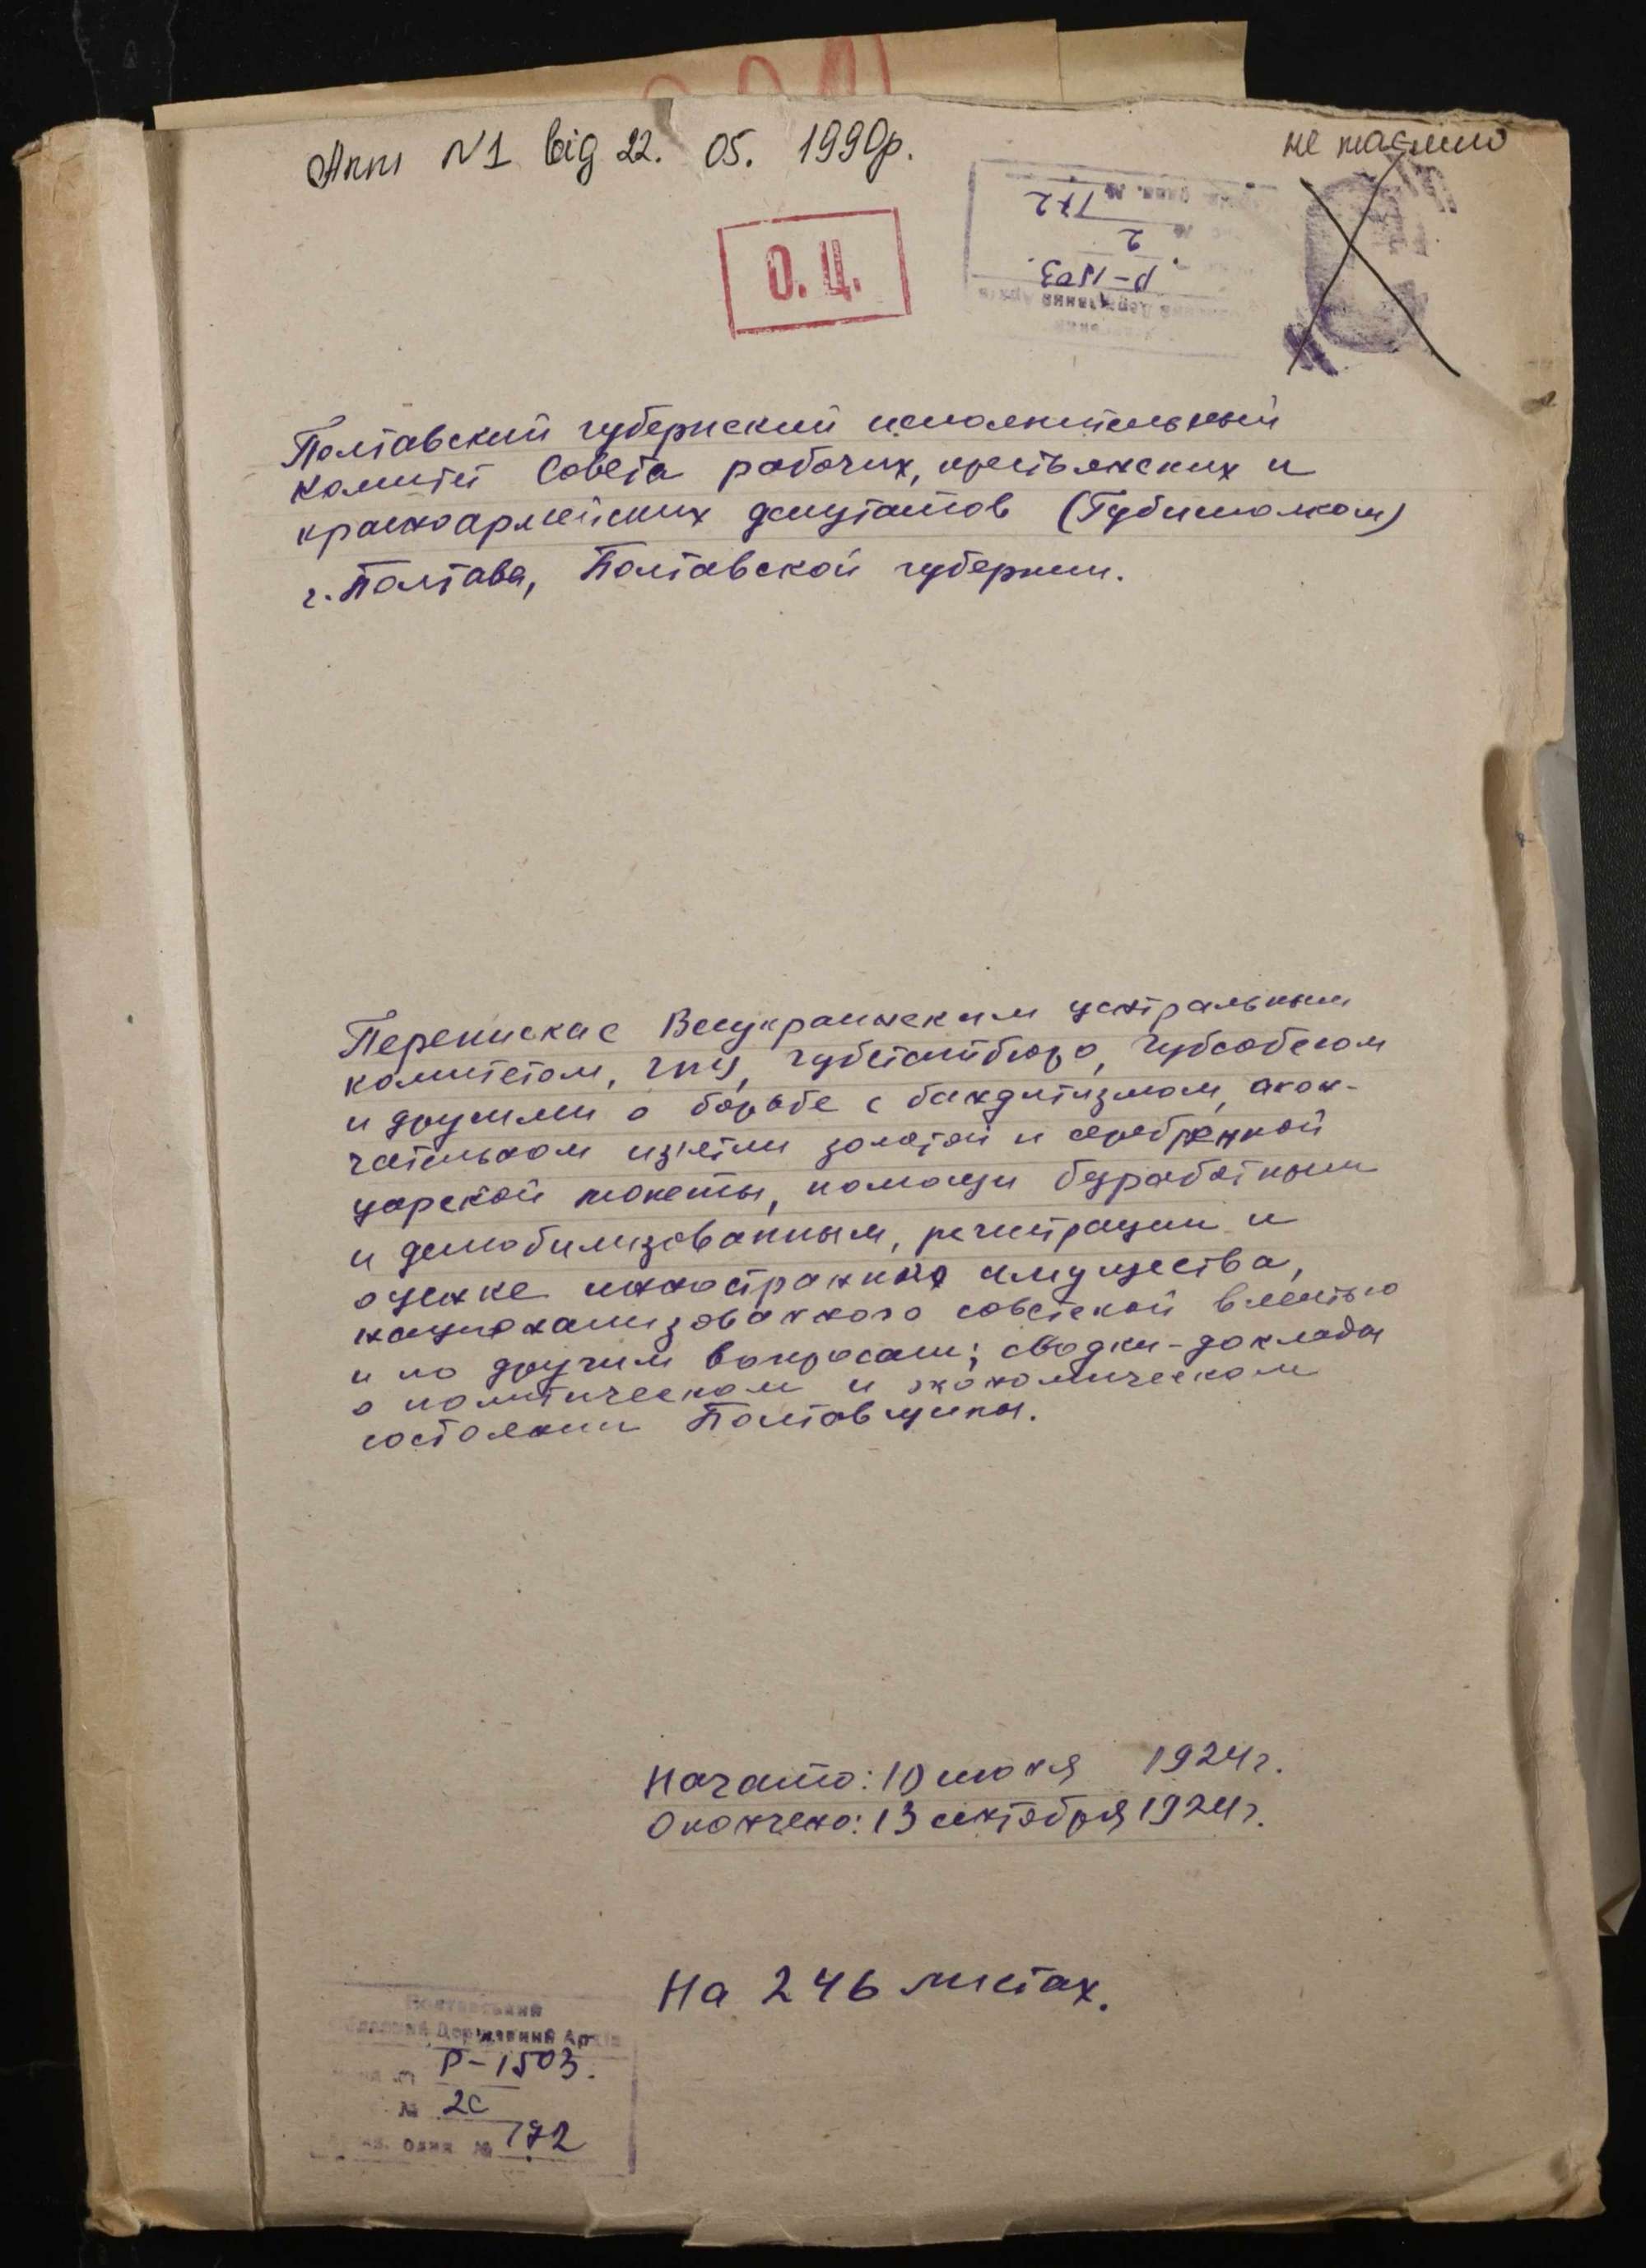 Акт №1 від 22. 05. 1990р.
не таємно
О. Ц.
Р-1503.
2
172
Полтавский губернский исполнительный
комитет Совета рабочих, крестьянских и
красноармейских депутатов (Губисполком)
г. Полтава, Полтавской губернии.
Переписка с Всеукраинским центральным
комитетом, ГПУ, губстатбюро, губсобесом
и другими о борьбе с бандитизмом, окон-
чательном изъятии золотой и серебренной
царской монеты, помощи безработным
и демобилизованным, регистрации и
оценке иностранного имущества,
национализованного советской властью
и по другим вопросам; сводки-доклады
о политическом и экономическом
состоянии Полтавщины.
Начато: 10 июня 1924г.
Окончено: 13 октября 1924г.
На 246 листах.
Державний Архів
Р-1503.
№ 2с
№ 172